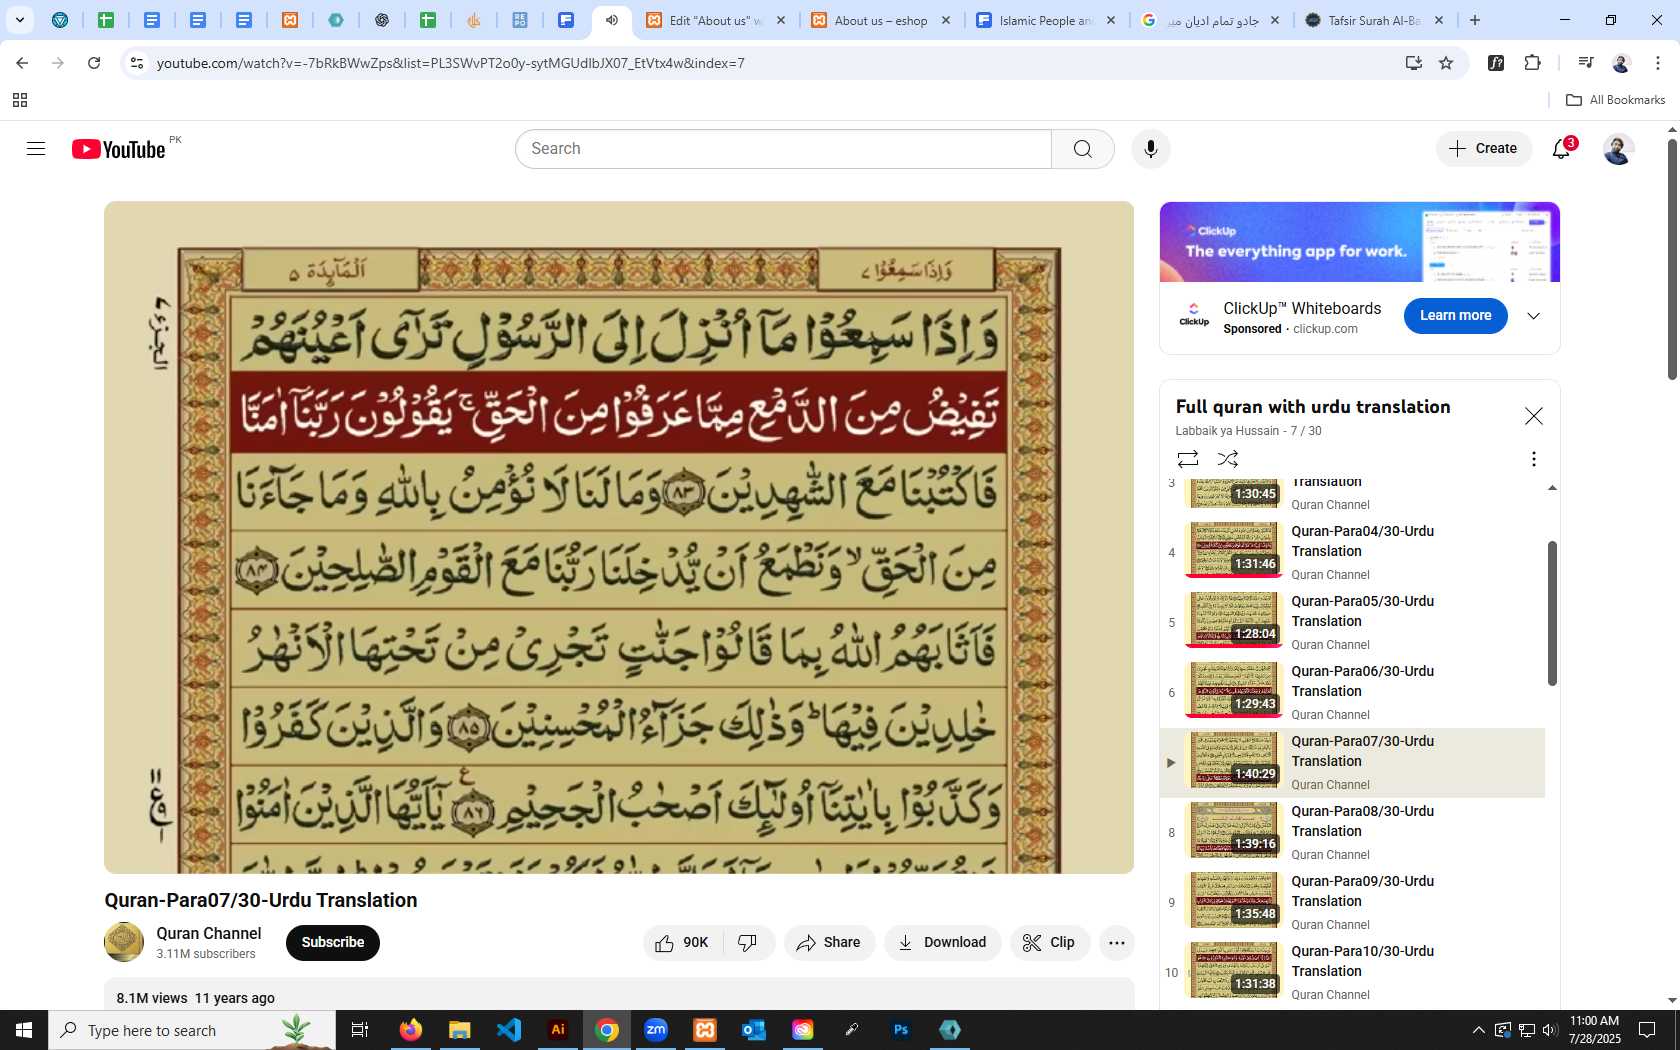 Edit "About us" w
About us – eshop
Islamic People an
جادو تمام ادیان میر
Tafsir Surah Al-Ba
youtube.com/watch?v=-7bRkBWwZps&list=PL3SWvPT2o0y-sytMGUdIbJX07_EtVtx4w&index=7
All Bookmarks
YouTube PK
Search
Create
3
وَاِذَا سَمِعُوْا ٧
اَلْمَآىِٕدَة ٥
وَاِذَا سَمِعُوْا مَاۤ اُنْزِلَ اِلَى الرَّسُوْلِ تَرٰۤى اَعْيُنَهُمْ
تَفِيْضُ مِنَ الدَّمْعِ مِمَّا عَرَفُوْا مِنَ الْحَقِّ ۚ يَقُوْلُوْنَ رَبَّنَاۤ اٰمَنَّا
فَاكْتُبْنَا مَعَ الشّٰهِدِيْنَ ٨٣ وَمَا لَنَا لَا نُؤْمِنُ بِاللّٰهِ وَمَا جَآءَنَا
مِنَ الْحَقِّ ۙ وَنَطْمَعُ اَنْ يُّدْخِلَنَا رَبُّنَا مَعَ الْقَوْمِ الصّٰلِحِيْنَ ٨٤
فَاَثَابَهُمُ اللّٰهُ بِمَا قَالُوْا جَنّٰتٍ تَجْرِيْ مِنْ تَحْتِهَا الْاَنْهٰرُ
خٰلِدِيْنَ فِيْهَا ؕ وَذٰلِكَ جَزَآءُ الْمُحْسِنِيْنَ ٨٥ وَالَّذِيْنَ كَفَرُوْا
وَكَذَّبُوْا بِاٰيٰتِنَاۤ اُولٰٓىِٕكَ اَصْحٰبُ الْجَحِيْمِ ٨٦ يٰۤاَيُّهَا الَّذِيْنَ اٰمَنُوْا
Quran-Para07/30-Urdu Translation
Quran Channel
3.11M subscribers
Subscribe
90K
Share
Download
Clip
8.1M views 11 years ago
ClickUp
The everything app for work.
ClickUp
ClickUp™ Whiteboards
Sponsored · clickup.com
Learn more
Full quran with urdu translation
Labbaik ya Hussain - 7 / 30
3
1:30:45
Translation
Quran Channel
4
1:31:46
Quran-Para04/30-Urdu
Translation
Quran Channel
5
1:28:04
Quran-Para05/30-Urdu
Translation
Quran Channel
6
1:29:43
Quran-Para06/30-Urdu
Translation
Quran Channel
1:40:29
Quran-Para07/30-Urdu
Translation
Quran Channel
8
1:39:16
Quran-Para08/30-Urdu
Translation
Quran Channel
9
1:35:48
Quran-Para09/30-Urdu
Translation
Quran Channel
10
1:31:38
Quran-Para10/30-Urdu
Translation
Quran Channel
Type here to search
Ai
zm
Ps
11:00 AM
7/28/2025